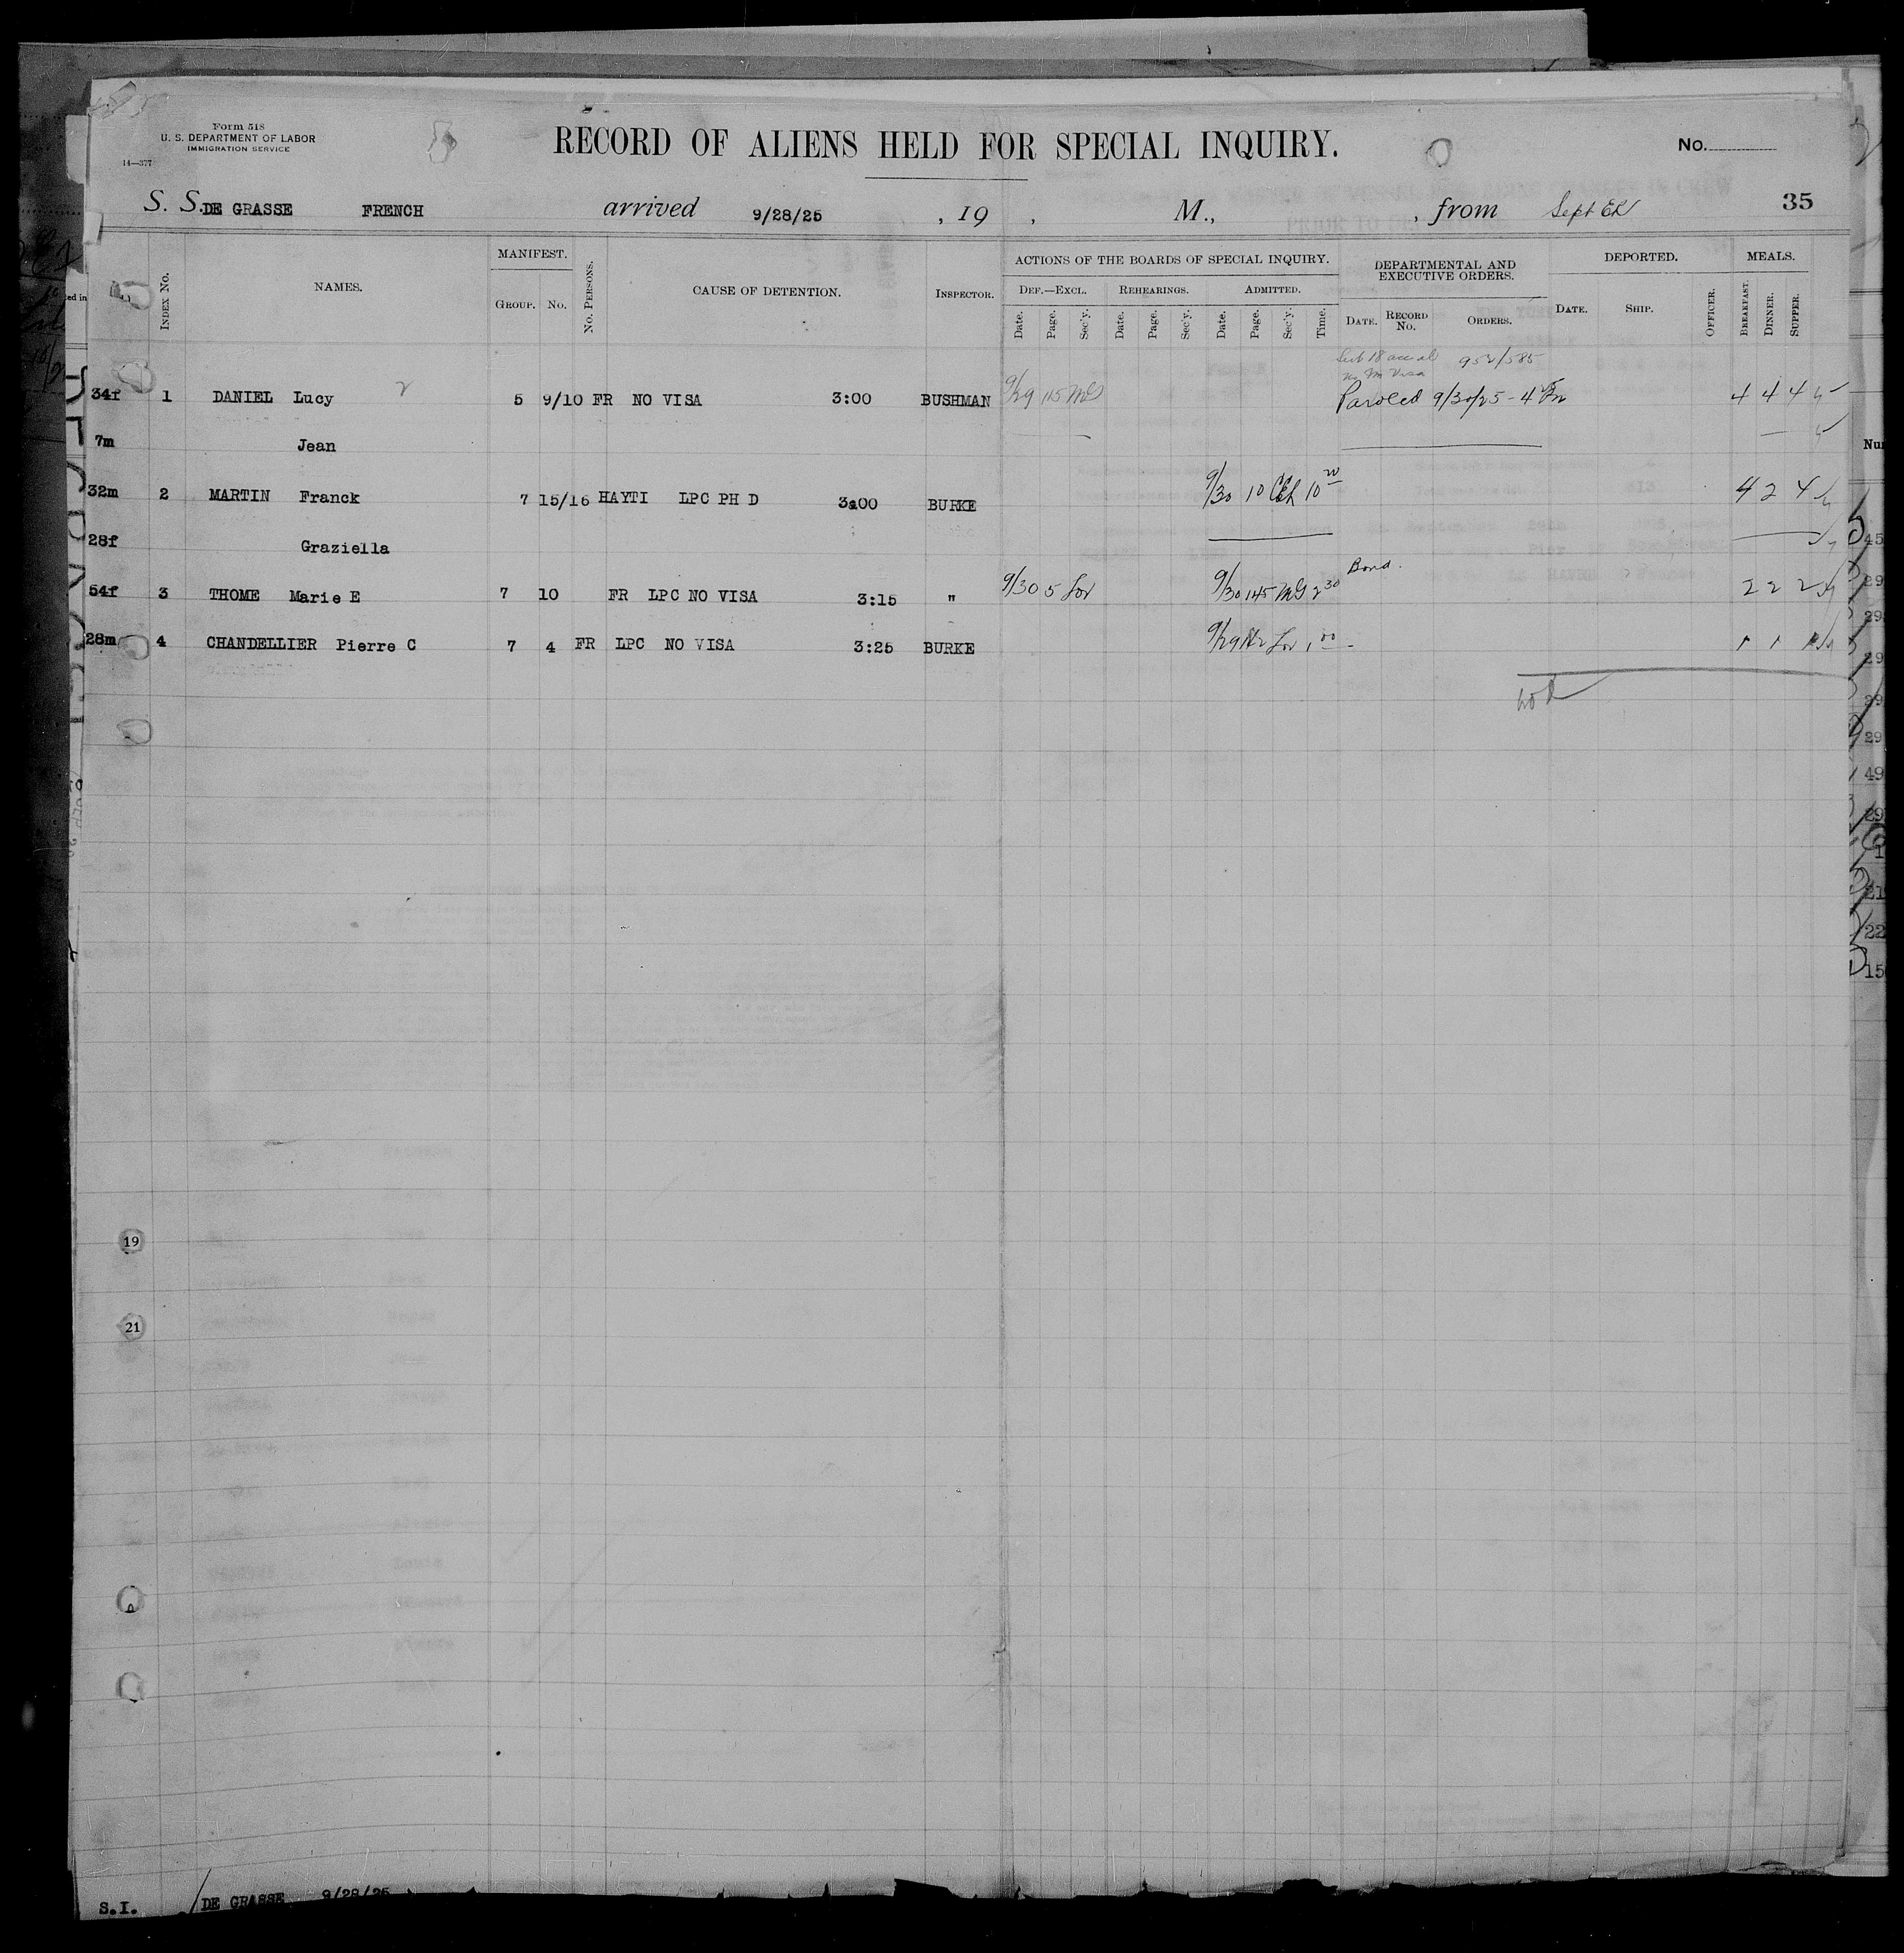 Form 518
U. S. DEPARTMENT OF LABOR
IMMIGRATION SERVICE
14—377
RECORD OF ALIENS HELD FOR SPECIAL INQUIRY.
No.
S. S. DE GRASSE FRENCH arrived 9/28/25 , 19 , M., , from Sept 35
INDEX No. NAMES. MANIFEST. GROUP. No. No. PERSONS. CAUSE OF DETENTION. INSPECTOR.
ACTIONS OF THE BOARDS OF SPECIAL INQUIRY.
DEF.—EXCL. REHEARINGS. ADMITTED.
Date. Page. Sec'y. Date. Page. Sec'y. Date. Page. Sec'y. Time.
DEPARTMENTAL AND EXECUTIVE ORDERS.
DATE. RECORD No. ORDERS.
DEPORTED.
DATE. SHIP. OFFICER.
MEALS.
BREAKFAST. DINNER. SUPPER.
952/585
Visa
34f 1 DANIEL Lucy 2 5 9/10 FR NO VISA 3:00 BUSHMAN 9/29 115 Paroled 9/30/25 - 4 4 4 4
7m Jean
32m 2 MARTIN Franck 7 15/16 HAYTI LPC PH D 3:00 BURKE 9/30 10 10 4 2 4
28f Graziella
54f 3 THOME Marie E 7 10 FR LPC NO VISA 3:15 " 9/30 5 9/30 145 2 30 Bond. 2 2 2
28m 4 CHANDELLIER Pierre C 7 4 FR LPC NO VISA 3:25 BURKE 9/29 1 00 1 1 1
19
21
S.I. DE GRASSE 9/28/25